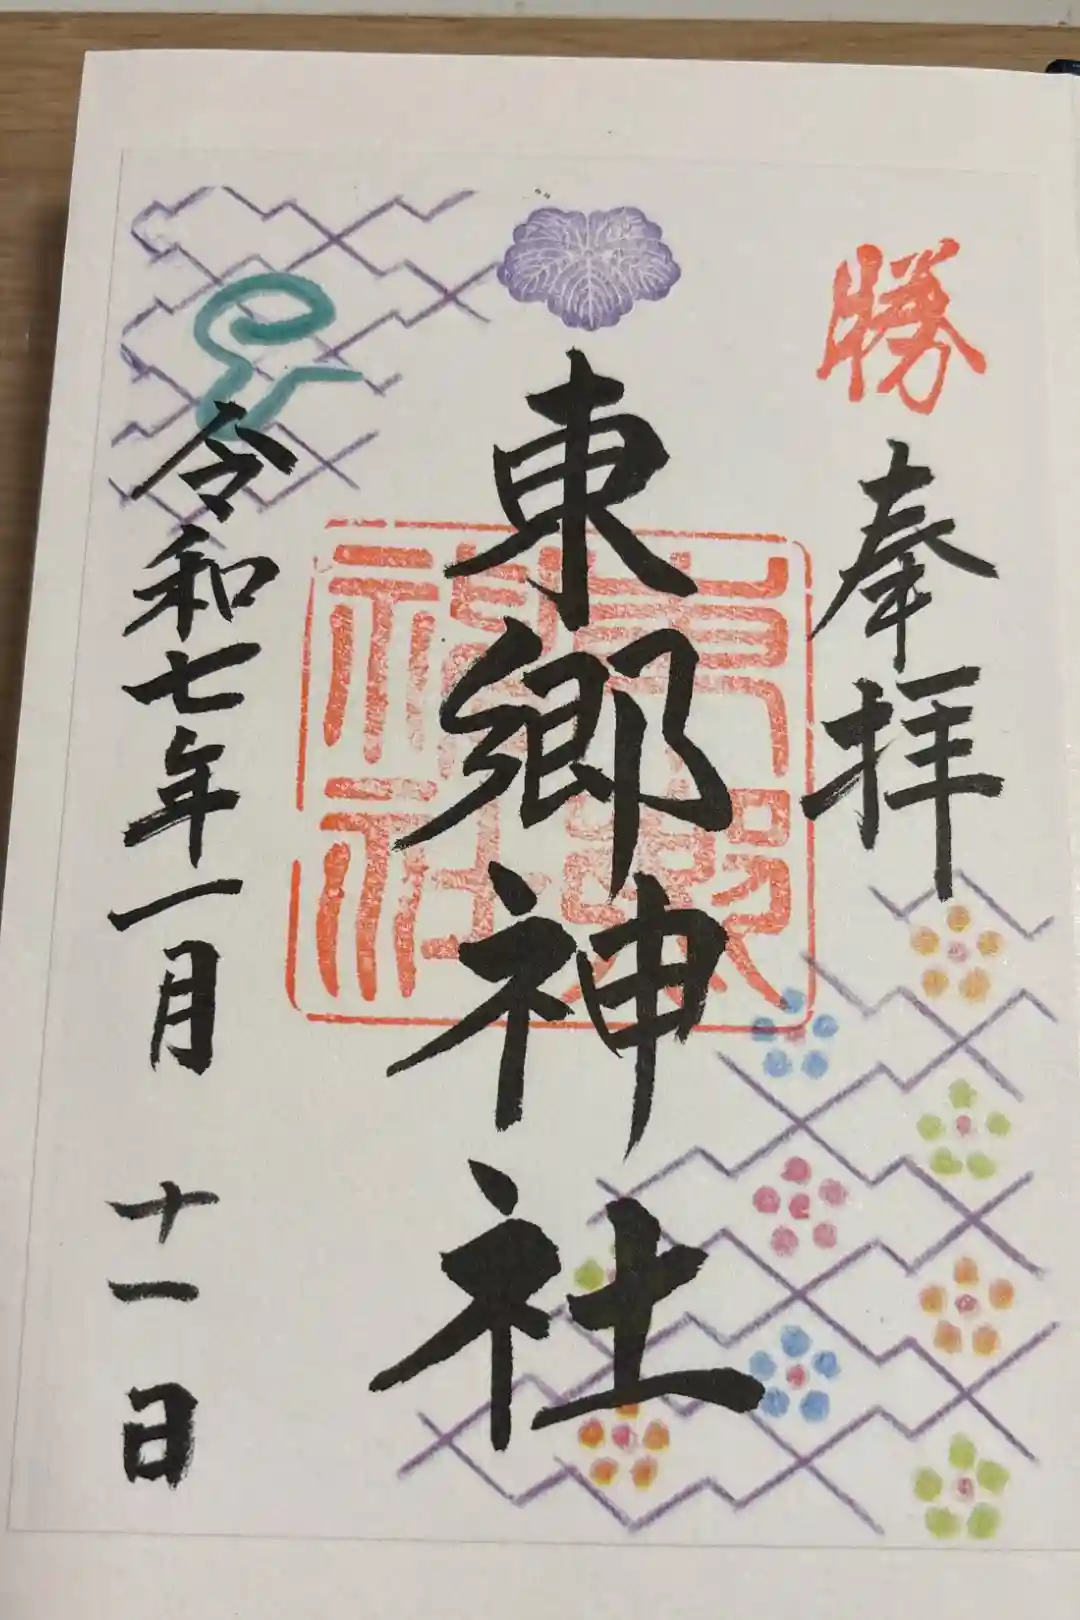 勝
奉拝
東郷神社
東郷神社
令和七年一月十一日